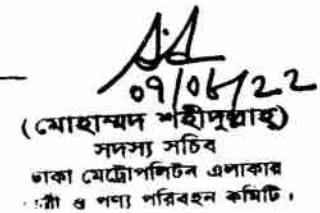 09/06/22
(মোহাম্মদ শহীদুল্লাহ্)
সদস্য সচিব
ঢাকা মেট্রোপলিটন এলাকার
ও পণ্য পরিবহন কমিটি।